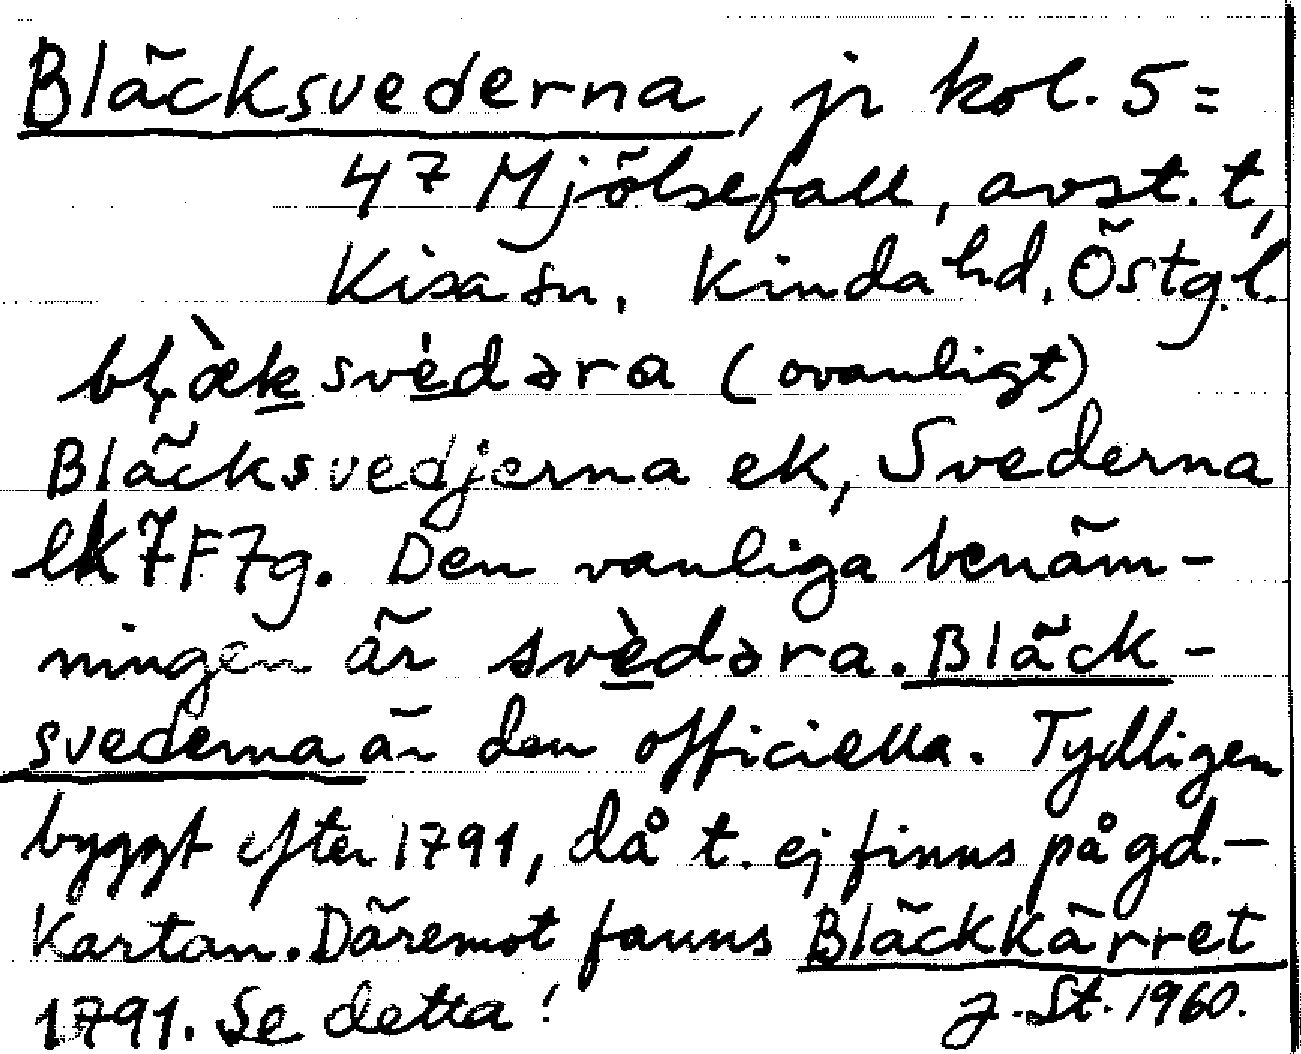 Bläcksvederna, jr kol. 5 =
47 Mjölsefall, avst. t,
Kisa sn, Kinda hd, Östg.l.
bḷæ̀ksvédəra (ovanligt)
Bläcksvedjerna ek, Svederna
ek 7F7g. Den vanliga benäm-
ningen är svèdəra. Bläck-
svederna är den officiella. Tydligen
byggt efter 1791, då t. ej finns på gd.-
Kartan. Däremot fanns Bläckkärret
1791. Se detta!
J. St. 1960.